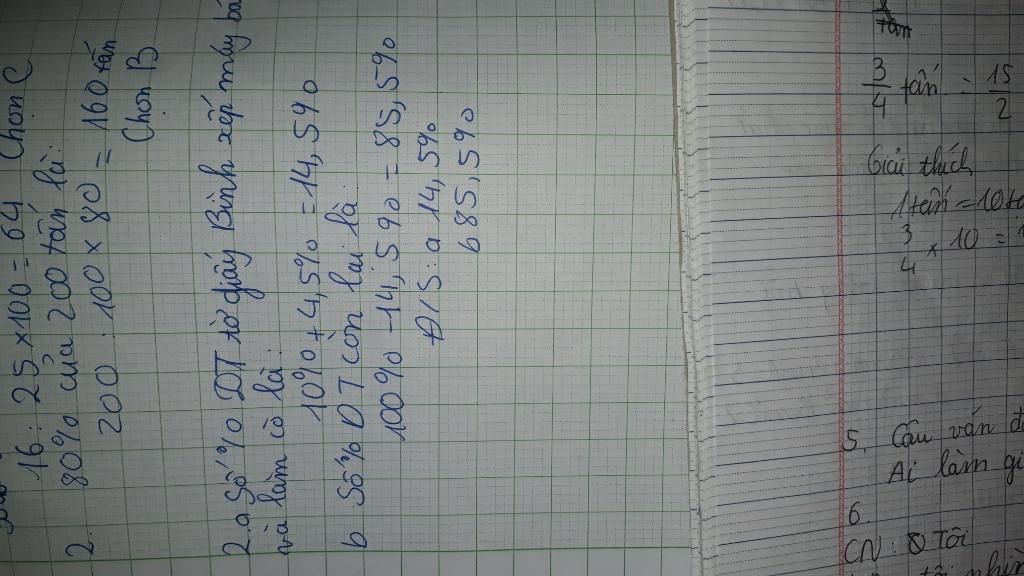 16 : 25 x 100 = 64 Chọn C
2. 80% của 200 tấn là:
200 : 100 x 80 = 160 tấn
Chọn B
2.a Số % DT tờ giấy Bình xếp máy
và làm cờ là:
10% + 4,5% = 14,5%
b Số % DT còn lại là
100% - 14,5% = 85,5%
Đ/S: a 14,5%
b 85,5%
3/4 tấn = 15/2
Giải thích
1 tấn = 10
3/4 x 10 =
5. Câu văn
Ai làm
6.
CN: Tôi